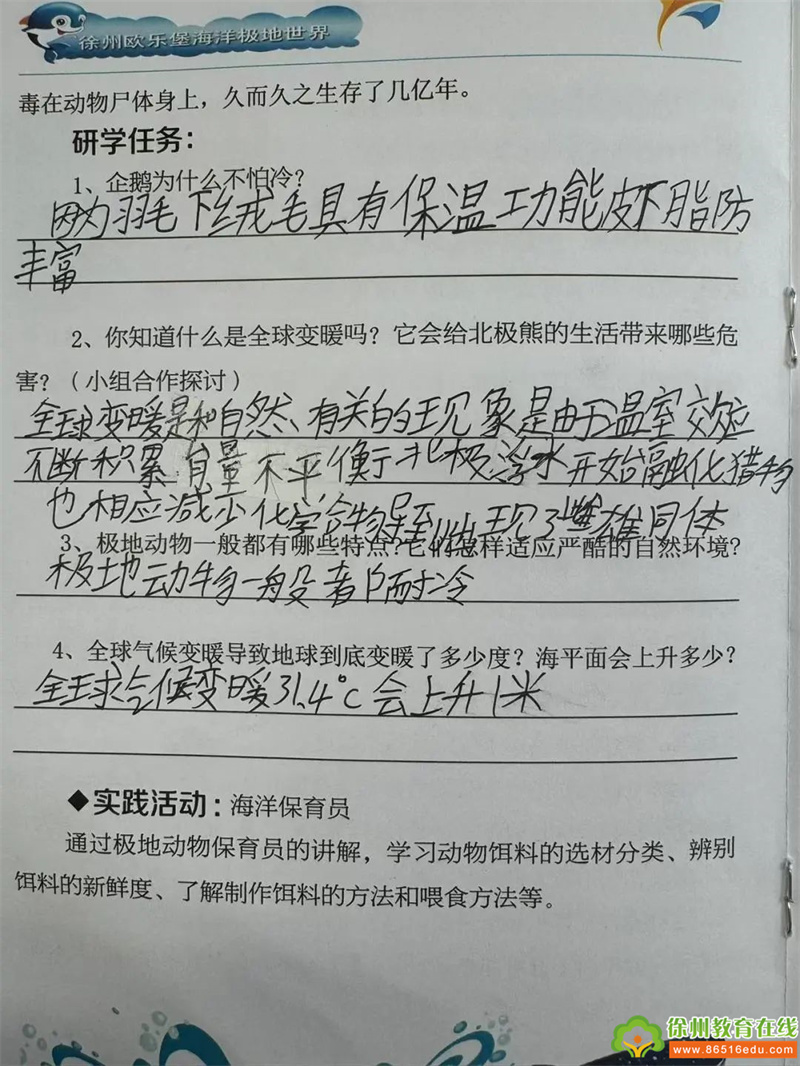 徐州欧乐堡海洋极地世界
毒在动物尸体身上，久而久之生存了几亿年。
研学任务：
1、企鹅为什么不怕冷？
因为羽毛下绒毛具有保温功能皮下脂防
丰富
2、你知道什么是全球变暖吗？它会给北极熊的生活带来哪些危
害？（小组合作探讨）
全球变暖是和自然、有关的现象是由于温室效应
不断积累 能量不平衡北极浮冰开始融化猎物
也相应减少化学合物导至出现了雌雄同体
3、极地动物一般都有哪些特点?它们怎样适应严酷的自然环境?
极地动物一般者耐冷
4、全球气候变暖导致地球到底变暖了多少度？海平面会上升多少？
全球气候变暖31.4°C会上升1米
◆实践活动：海洋保育员
通过极地动物保育员的讲解，学习动物饵料的选材分类、辨别
饵料的新鲜度、了解制作饵料的方法和喂食方法等。
徐州教育在线
www.86516edu.com